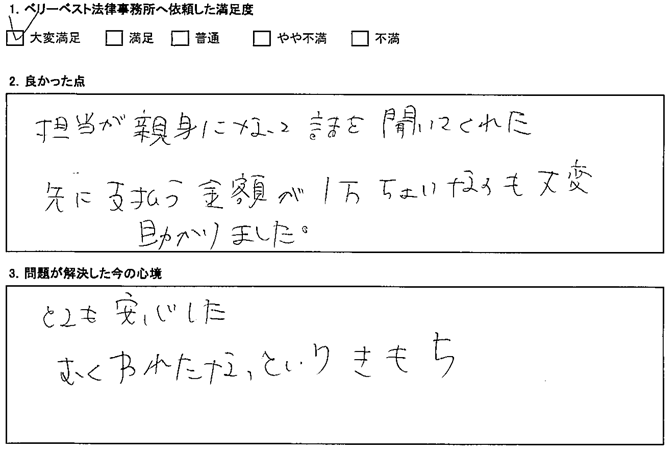 1. ベリーベスト法律事務所へ依頼した満足度
大変満足 満足 普通 やや不満 不満
2. 良かった点
担当が親身になって話を聞いてくれた
先に支払う金額が1万ちょいなのも大変
助かりました。
3. 問題が解決した今の心境
とても安心した
むくわれたな、というきもち